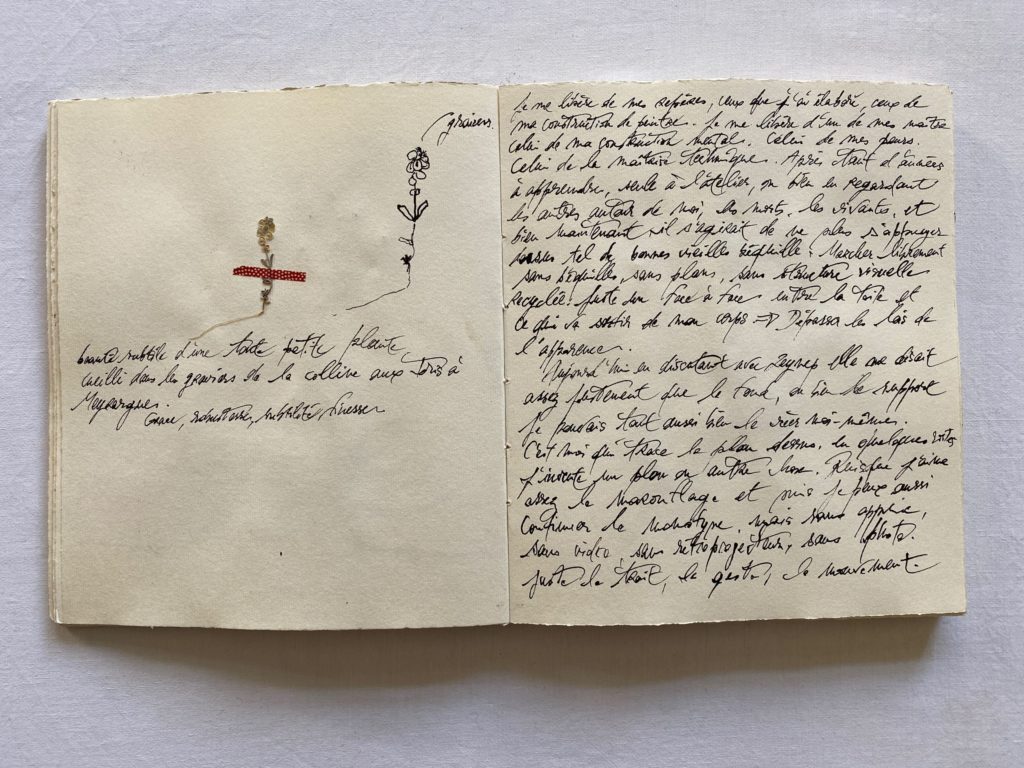 graines.
beauté subtile d'une toute petite plante,
cueilli dans les graviers de la colline aux à
Meyrargues.
robustesse, subtilité, finesse
Je me libère de mes repères, ceux que j'ai élaboré, ceux de
ma construction de peintre. Je me libère d'un de mes maîtres
celui de ma construction mental. Celui de mes peurs.
Celui de la maîtrise technique. Après tant d'années
à apprendre, seule à l'atelier, ou bien en regardant
les autres autour de moi, les morts, les vivants, et
bien maintenant il s'agirait de ne plus s'appuyer
sur tel de bonnes vieilles béquille. Marcher librement
sans béquilles, sans plans, sans structure visuelle
recyclée. Juste un face à face entre la toile et
ce qui va sortir de mon corps => Dépasser les lois de
l'apparence.
Aujourd'hui en discutant avec Zeynep elle me disait
assez justement que le fond, ou bien le support
je pouvais tout aussi bien le créer moi-même.
C'est moi qui trace le plan dessus, en quelques sortes
j'invente un plan ou autre chose. Puisque j'aime
assez le marouflage et puis je peux aussi
continuer le monotype, mais sans
sans vidéo, sans rétroprojecteur, sans photo.
Juste le trait, le geste, le mouvement.